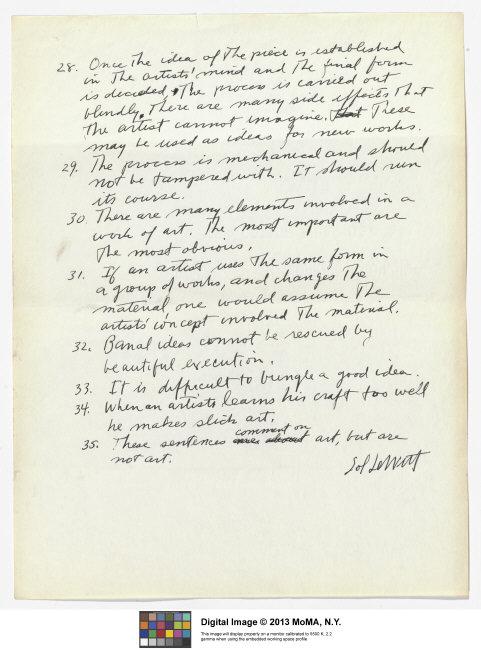 28. Once the idea of the piece is established
in the artists' mind and the final form
is decided, the process is carried out
blindly. There are many side effects that
the artist cannot imagine. These
may be used as ideas for new works.
29. The process is mechanical and should
not be tampered with. It should run
its course.
30. There are many elements involved in a
work of art. The most important are
the most obvious.
31. If an artist uses the same form in
a group of works, and changes the
material, one would assume the
artists' concept involved the material.
32. Banal ideas cannot be rescued by
beautiful execution.
33. It is difficult to bungle a good idea.
34. When an artists learns his craft too well
he makes slick art.
35. These sentences comment on art, but are
not art.
Sol LeWitt
Digital Image © 2013 MoMA, N.Y.
This image will display properly on a monitor calibrated to 6500 K, 2.2
gamma when using the embedded working space profile